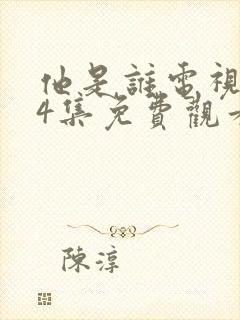 他是誰電視
4集免費觀
陳淳